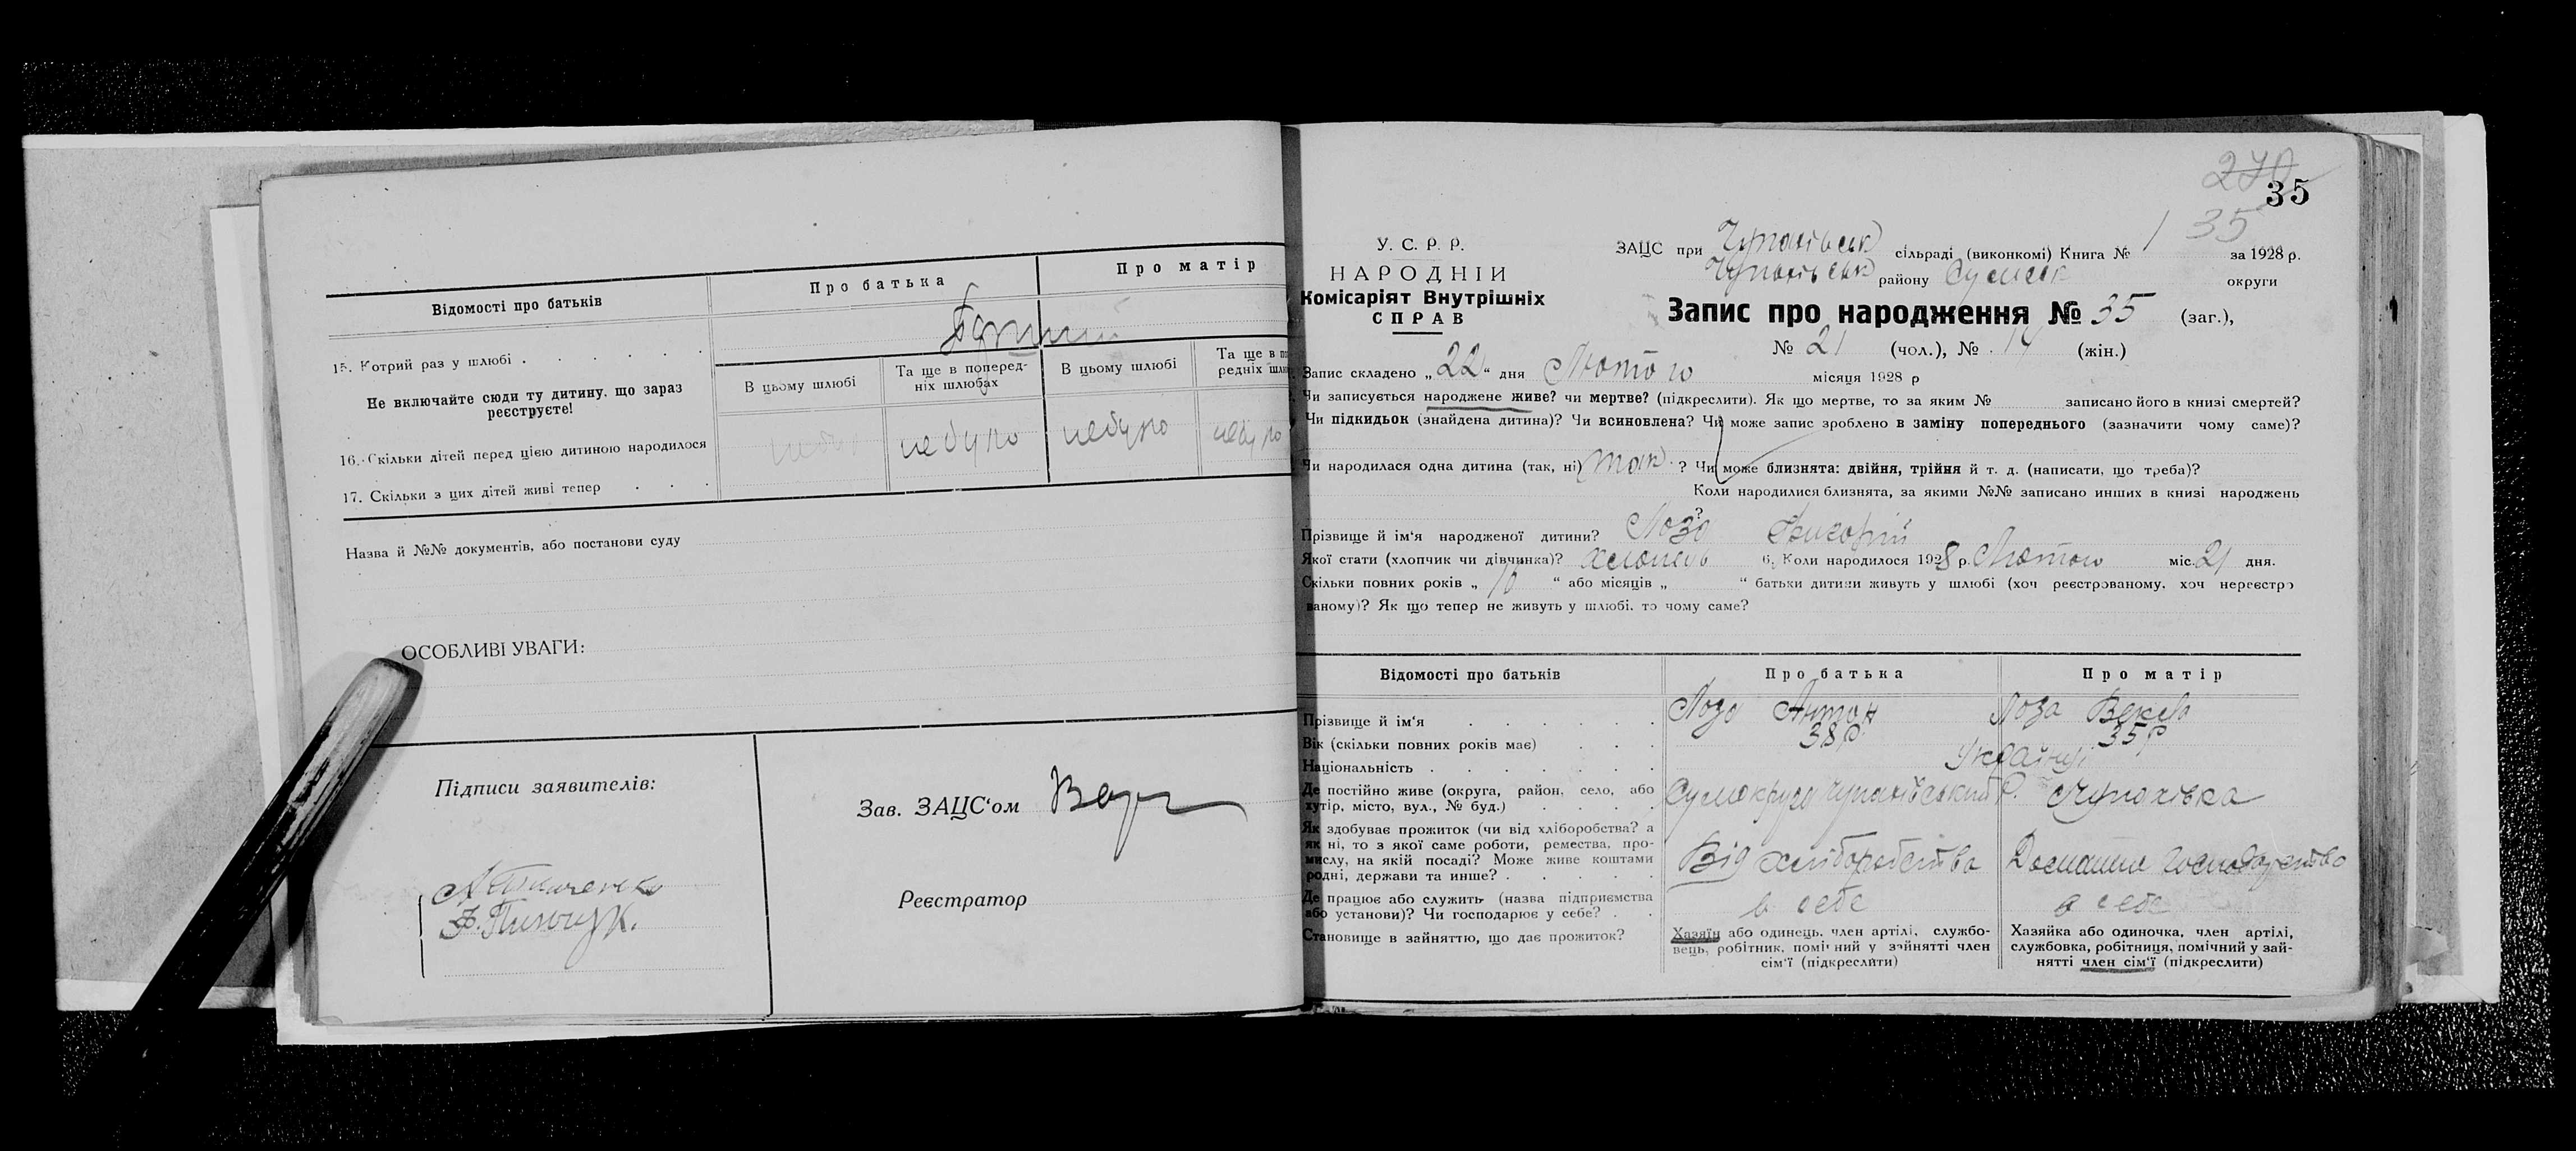 Відомості про батьків
Про батька
Про матір
15. Котрий раз у шлюбі
Не включайте сюди ту дитину, що зараз
реєструєте!
В цьому шлюбі
Та ще в поперед-
ніх шлюбах
В цьому шлюбі
Та ще в по
редніх шлю
16. Скільки дітей перед цією дитиною народилося
небуло
небуло
небуло
17. Скільки з цих дітей живі тепер
Назва й №№ документів, або постанови суду
ОСОБЛИВІ УВАГИ:
Підписи заявителів:
Зав. ЗАЦС'ом
Реєстратор
270
35
35
У. С. Р. Р.
НАРОДНІЙ
Комісаріят Внутрішніх
СПРАВ
ЗАЦС при Чупахівськ сільраді (виконкомі) Книга № 1 за 1928 р.
Чупахівськ району Сумськ округи
Запис про народження № 35 (заг.),
№ 21 (чол.), № 14 (жін.)
Запис складено „22“ дня Лютого місяця 1928 р
Чи записується народжене живе? чи мертве? (підкреслити). Як що мертве, то за яким № записано його в книзі смертей?
Чи підкидьок (знайдена дитина)? Чи всиновлена? Чи може запис зроблено в заміну попереднього (зазначити чому саме)?
Чи народилася одна дитина (так, ні) так ? Чи може близнята: двійня, трійня й т. д. (написати, що треба)?
Коли народилися близнята, за якими №№ записано инших в книзі народжень
?
Прізвище й ім'я народженої дитини? Лоза Григорій
Якої стати (хлопчик чи дівчинка)? хлопець 6. Коли народилося 1928 р. Лютого міс. 21 дня.
Скільки повних років „ 16 “ або місяців „ “ батьки дитини живуть у шлюбі (хоч реєстрованому, хоч нереєстро
ваному)? Як що тепер не живуть у шлюбі, то чому саме?
Відомості про батьків
Про батька
Про матір
Прізвище й ім'я
Лоза Антон
Лоза Векла
Вік (скільки повних років має)
38 р.
35 р
Національність
Українці
Де постійно живе (округа, район, село, або
хутір, місто, вул., № буд.)
Сумокруга Чупахівський р. Чупахівка
Як здобуває прожиток (чи від хліборобства? а
як ні, то з якої саме роботи, ремества, про-
мислу, на якій посаді? Може живе коштами
родні, держави та инше?
Від хліборобства
Домашнє господарство
Де працює або служить (назва підприємства
або установи)? Чи господарює у себе?
в себе
в себе
Становище в зайняттю, що дає прожиток?
Хазяїн або одинець, член артілі, службо-
вець, робітник, помічний у зайнятті член
сім'ї (підкреслити)
Хазяйка або одиночка, член артілі,
службовка, робітниця, помічний у зай-
нятті член сім'ї (підкреслити)